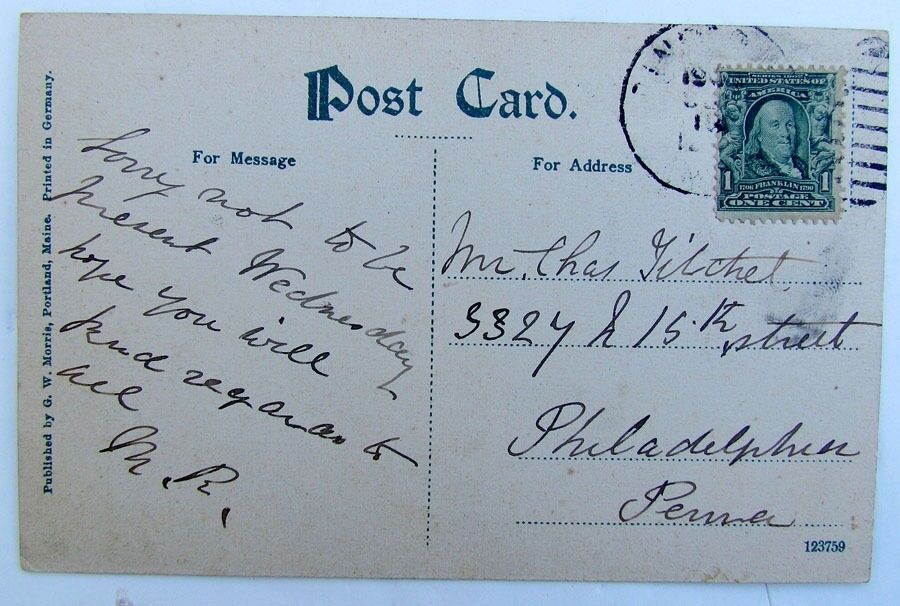 Post Card.
For Message
For Address
Published by G. W. Morris, Portland, Maine. Printed in Germany.
Sorry not to be
present Wednesday
hope you will
kind regards to
all
M. R.
SERIES 1902
UNITED STATES OF
AMERICA
1 1706 FRANKLIN 1790 1
POSTAGE
ONE CENT
Mr. Chas
3327 N 15th street
Philadelphia
Penna
123759